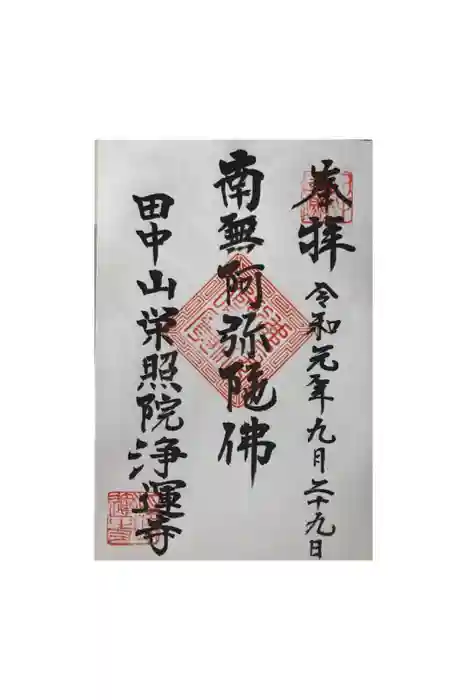 奉拝
令和元年九月二十九日
南無阿弥陀佛
田中山栄照院浄運寺